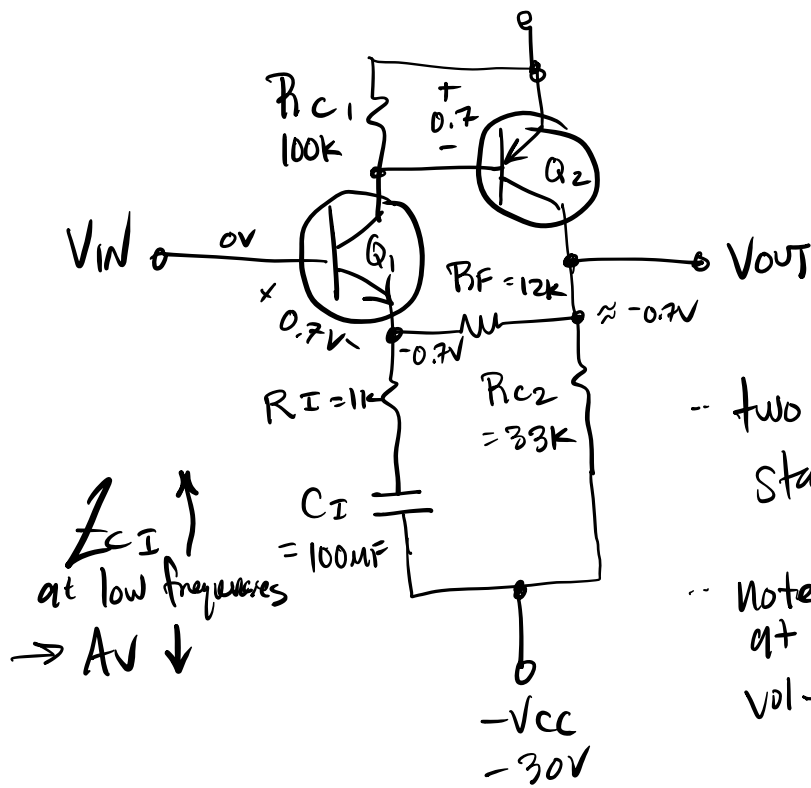 RC1
100K
+
0.7
-
Q2
VIN
0V
Q1
+
0.7V-
-0.7V
RF = 12K
VOUT
≈ -0.7V
RI = 1K
RC2
= 33K
CI
= 100µF
ZCI ↑
at low frequencies
→ AV ↓
-VCC
-30V
-- two
sta
-- note
at
vol-